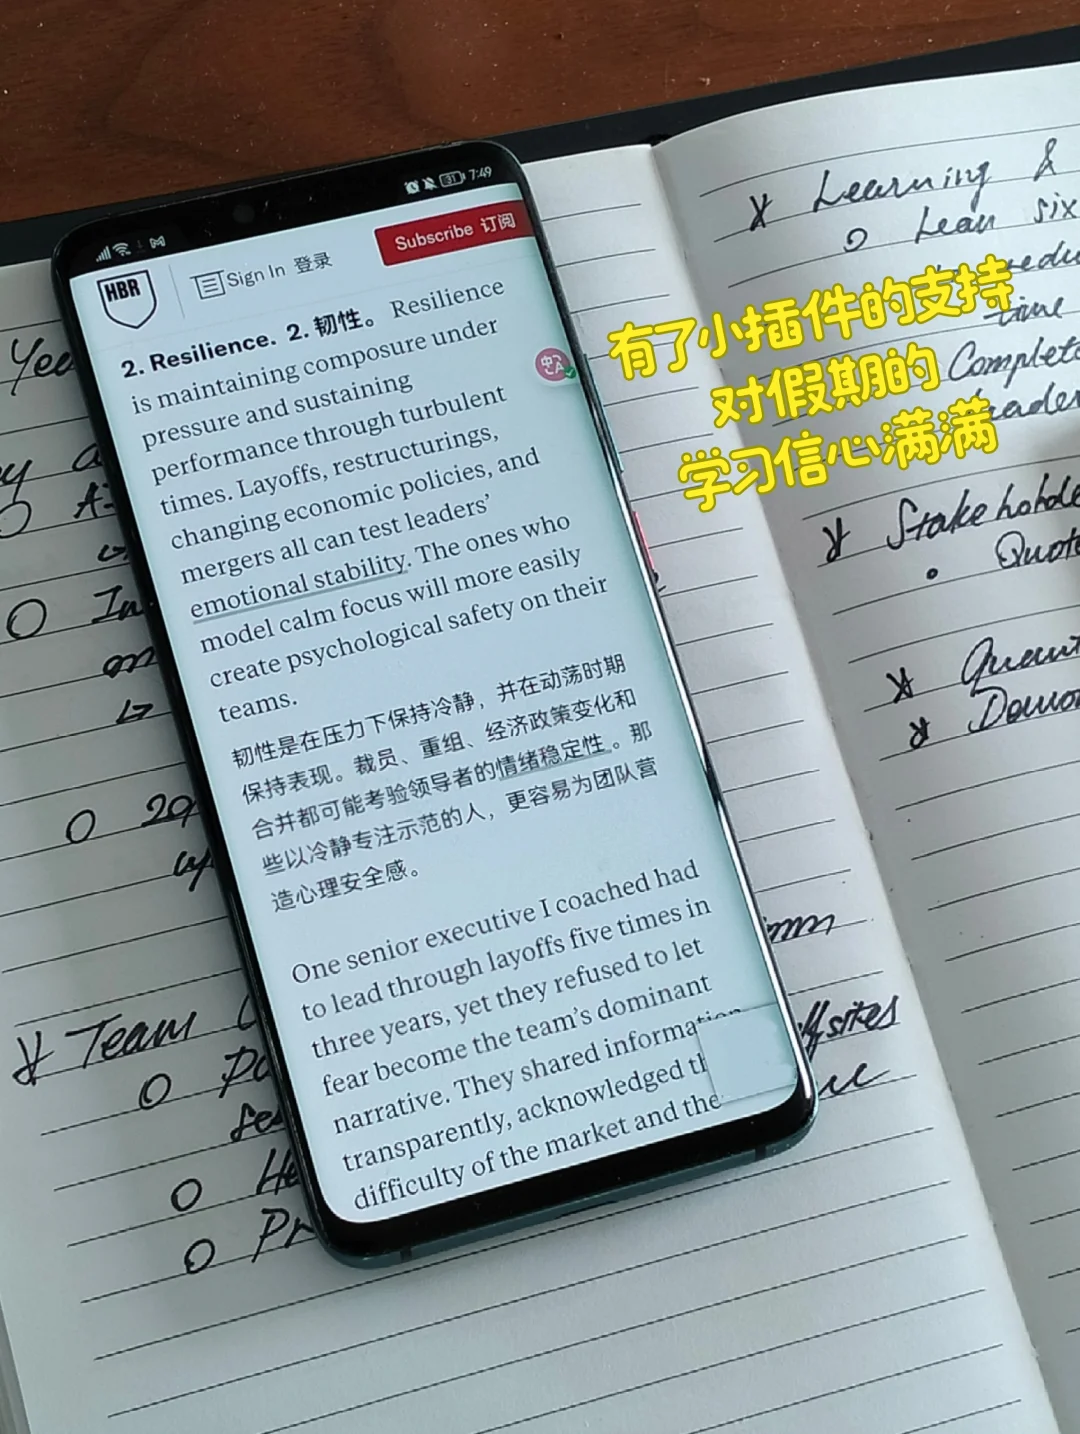 7:49
HBR
Sign In 登录
Subscribe 订阅
2. Resilience. 2. 韧性。 Resilience
is maintaining composure under
pressure and sustaining
performance through turbulent
times. Layoffs, restructurings,
changing economic policies, and
mergers all can test leaders’
emotional stability. The ones who
model calm focus will more easily
create psychological safety on their
teams.
韧性是在压力下保持冷静，并在动荡时期
保持表现。裁员、重组、经济政策变化和
合并都可能考验领导者的情绪稳定性。那
些以冷静专注示范的人，更容易为团队营
造心理安全感。
One senior executive I coached had
to lead through layoffs five times in
three years, yet they refused to let
fear become the team’s dominant
narrative. They shared information
transparently, acknowledged th
difficulty of the market and the
有了小插件的支持
对假期的
学习信心满满
Learning &
Lean six
time
Complete
Stakeholde
Quote
Team